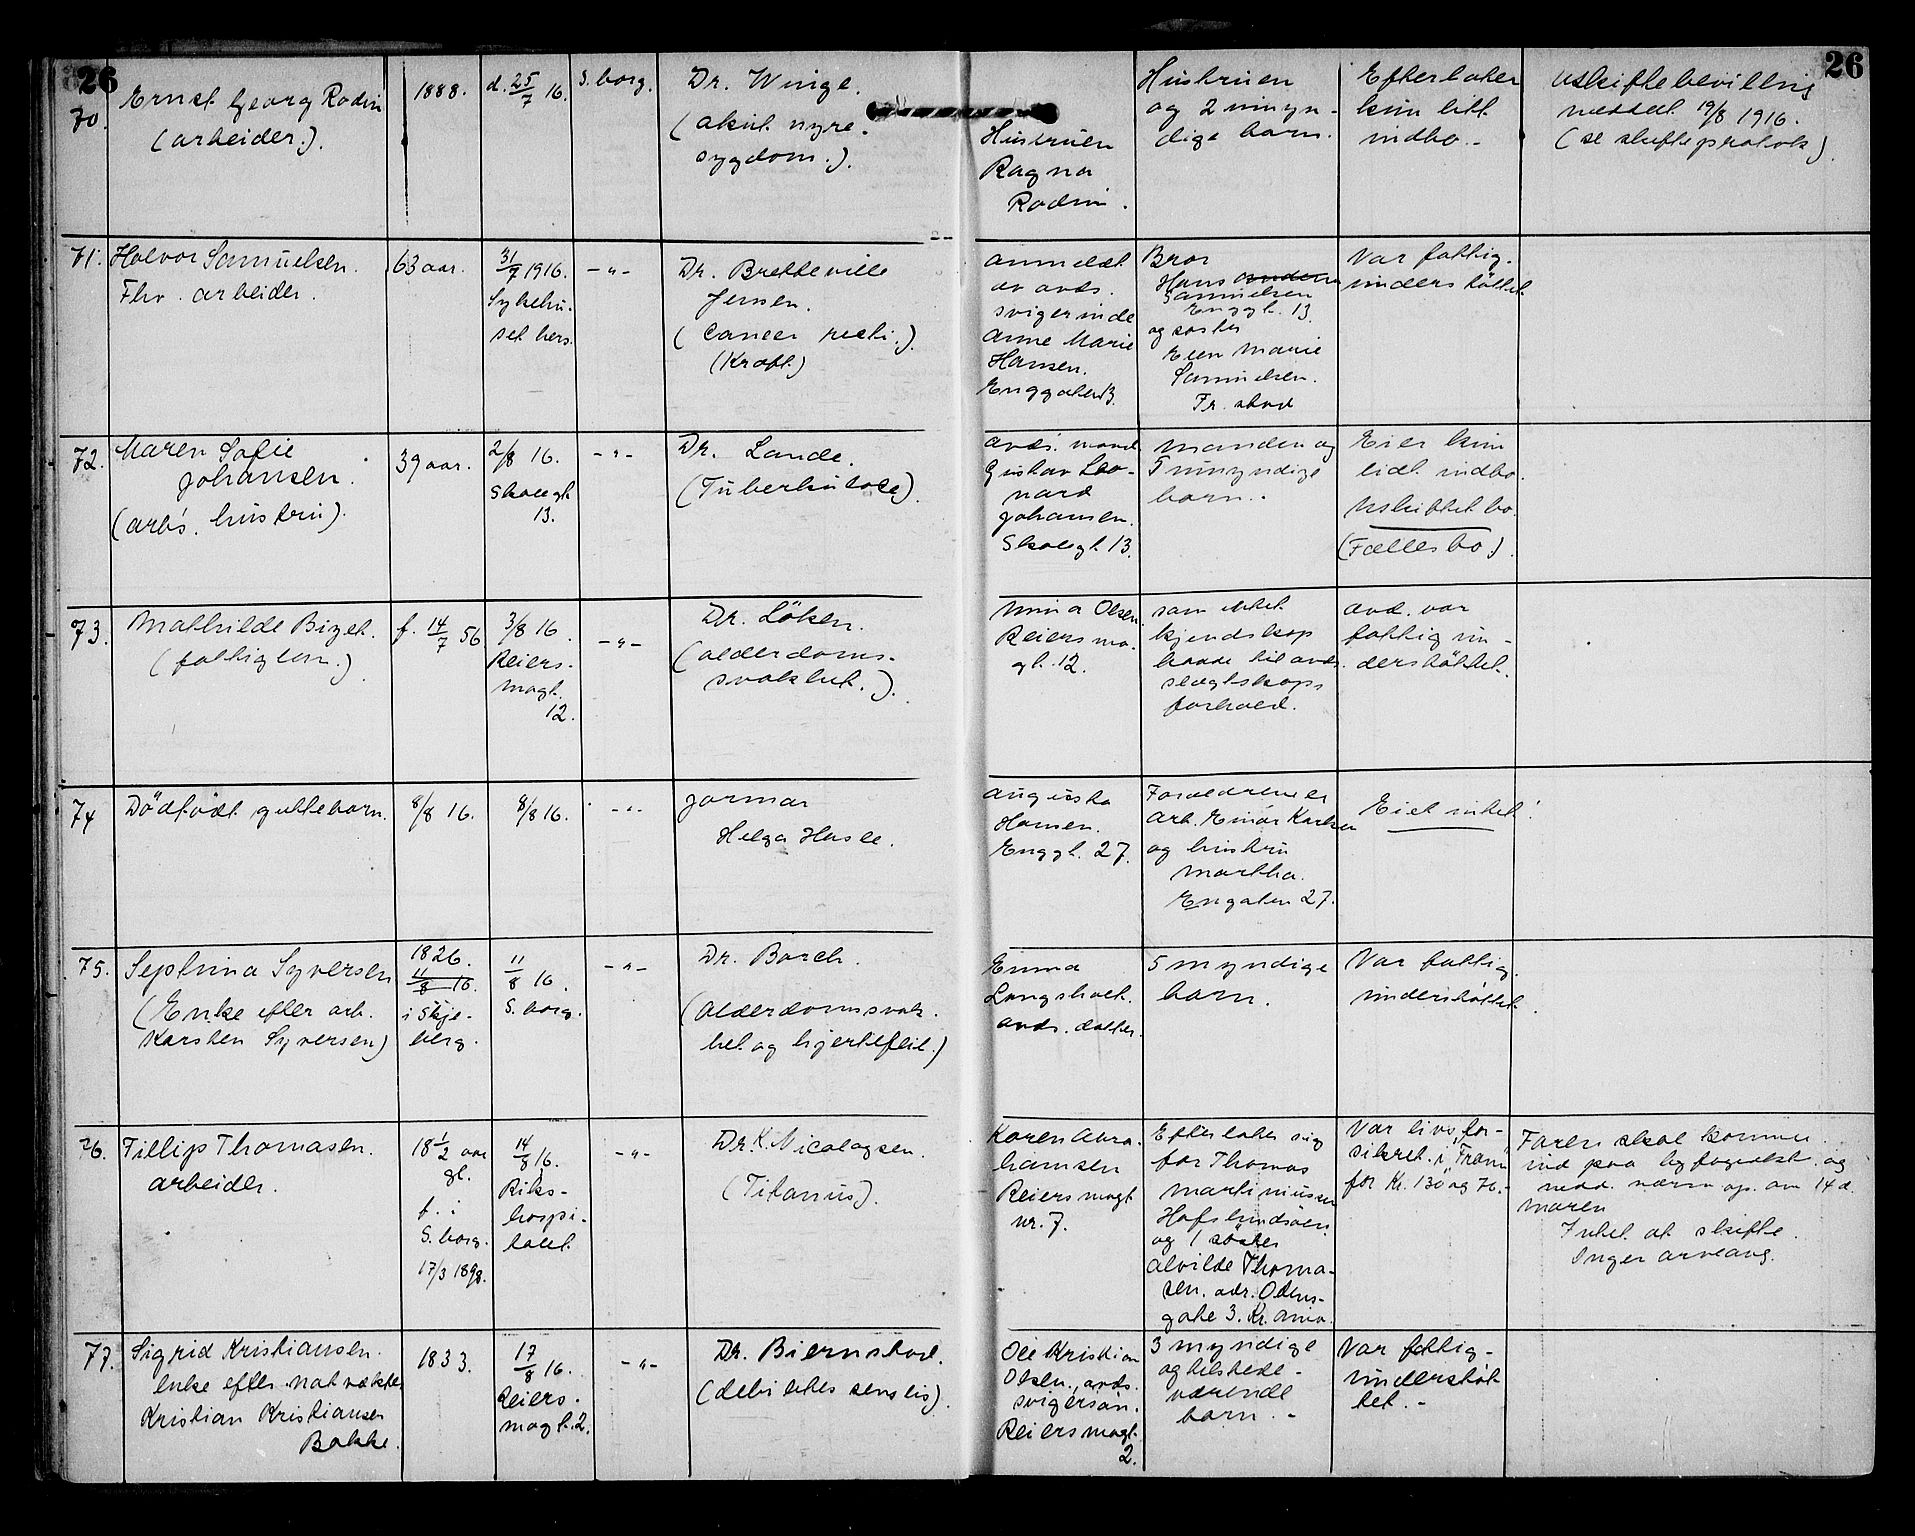 26
26
70.
Ernst Georg Rodin
(arbeider.).
1888.
d. 25/7 16.
S. borg.
Dr. Winge.
(akut nyre-
sygdom.).
Hustruen
Ragna
Rodin.
Hustruen
og 2 umyn-
dige barn.
Efterlater
kun litt
indbo.-
Uskiftebevilling
meddelt 19/8 1916.
(se skifteprotok.)
71.
Halvor Samuelsen.
Fhv. arbeider.
63 aar.
31/7 1916.
Sykehu-
set hers.
-"-
Dr. Bretteville
Jensen.
(Cancer recti.).
(Kræft.)
Anmeldt
av avds.
svigerinde
Anne Marie
Hansen.
Enggaten 13.
Bror
Hans
Samuelsen
Enggt. 13.
og søster
Elen Marie
Samuelsen.
Fr. stad
Var fattig-
understøttet.
72.
Maren Sofie
Johansen.
(arb's. hustru).
39 aar.
2/8 16.
Skolegt.
13.
-"-
Dr. Lande.
(Tuberkulose).
avds. mand
Gustav Leo-
nard
Johansen.
Skolegt. 13.
Manden og
5 umyndige
barn.
Eier kun
lidt indbo.
Uskiftet bo.
(Fællesbo).
73.
Mathilde Bizet.
(fattiglem.)
f. 14/7 56
3/8 16.
Reiers-
magt.
12.
-"-
Dr. Löken.
(alderdoms-
svakhet.).
Mina Olsen
Reiersma.
gt. 12.
som intet
kjendskap
hadde til avds.
slægtskaps
forhold.
avd. var
fattigun-
derstøttet.
74
Dödfödt guttebarn.
8/8 16.
8/8 16.
-"-
Jormor
Helga Hasle.
Augusta
Hansen.
Enggt. 27.
Forældrene er
Arb. Einar Karlsen
og hustru
Martha.
Engaten 27.
Eiet intet!
75.
Sephina Syversen
(Enke efter arb.
Karsten Syversen)
1826.
11/8 16.
i Skje-
berg.
11/8 16.
S. borg.
-"-
Dr. Borch.
(Alderdomssvak.
het og hjertefeil.)
Emma
Langsholt.
avds. datter.
5 myndige
barn.
Var fattig.
understøttet.
76.
Fillip Thomasen.
arbeider.
18 1/2 aar
gl.
f. i
S. borg.
17/3 1898.
14/8 16.
Riks-
hospi-
talet.
-"-
Dr. K. Nicolaysen.
(Titanus).
Karen Abra-
hamsen
Reiersmagt
nr. 7.
Efterlater sig
far Thomas
Martiniussen
Hafslundsøen.
og 1 söster
Alvilde Thoma-
sen. adr. Odens-
gate 3. Kr.ania.
Var livsfor-
sikret i "Fram"
for Kr. 130 og 76.-
Faren skal komme
ind paa byfogedkt. og
medd. nærm. op. om 14 d.
maren
Intet at skifte.
Ingen arveavg.
77.
Sigrid Kristiansen.
enke efter natvækter
Kristian Kristiansen
Bakke.
1833.
17/8 16.
Reiers-
magt. 2.
-"-
Dr. Biernstad.
(debilitas senilis).
Ole Kristian
Olsen, avds.
svigersøn.
Reiersmagt.
2.
3 myndige
og tilstede-
værende
barn.-
Var fattig-
understøt
tet.-